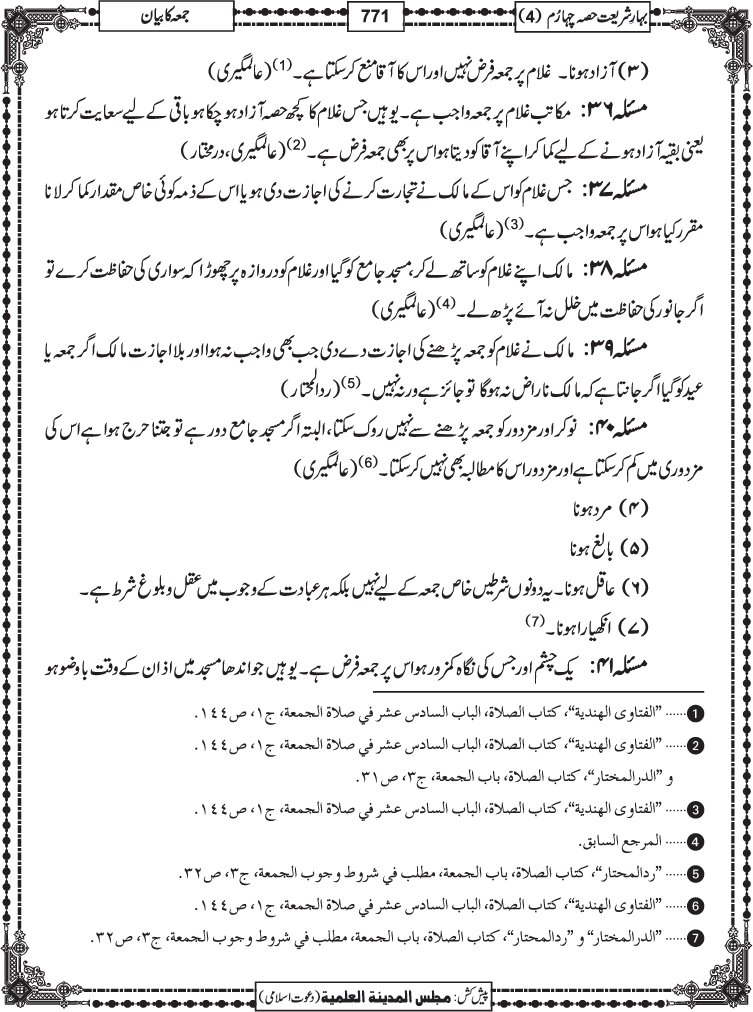 بہارِشریعت حصہ چہارم (4)
771
جمعہ کا بیان
(۳) آزاد ہونا۔ غلام پر جمعہ فرض نہیں اور اس کا آقا منع کر سکتا ہے۔(1) (عالمگیری)
مسئلہ ۳۶: مکاتب غلام پر جمعہ واجب ہے۔ یو ہیں جس غلام کا کچھ حصہ آزاد ہو چکا ہو باقی کے لیے سعایت کرتا ہو
یعنی بقیہ آزاد ہونے کے لیے کما کر اپنے آقا کو دیتا ہو اس پر بھی جمعہ فرض ہے۔(2) (عالمگیری، درمختار)
مسئلہ ۳۷: جس غلام کو اس کے مالک نے تجارت کرنے کی اجازت دی ہو یا اس کے ذمہ کوئی خاص مقدار کما کر لانا
مقرر کیا ہو اس پر جمعہ واجب ہے۔(3) (عالمگیری)
مسئلہ ۳۸: مالک اپنے غلام کو ساتھ لے کر، مسجد جامع کو گیا اور غلام کو دروازہ پر چھوڑا کہ سواری کی حفاظت کرے تو
اگر جانور کی حفاظت میں خلل نہ آئے پڑھ لے۔(4) (عالمگیری)
مسئلہ ۳۹: مالک نے غلام کو جمعہ پڑھنے کی اجازت دے دی جب بھی واجب نہ ہوا اور بلا اجازت مالک اگر جمعہ یا
عید کو گیا اگر جانتا ہے کہ مالک ناراض نہ ہوگا تو جائز ہے ورنہ نہیں۔(5) (ردالمحتار)
مسئلہ ۴۰: نوکر اور مزدور کو جمعہ پڑھنے سے نہیں روک سکتا، البتہ اگر مسجد جامع دور ہے تو جتنا حرج ہوا ہے اس کی
مزدوری میں کم کر سکتا ہے اور مزدور اس کا مطالبہ بھی نہیں کر سکتا۔(6) (عالمگیری)
(۴) مرد ہونا
(۵) بالغ ہونا
(۶) عاقل ہونا۔ یہ دونوں شرطیں خاص جمعہ کے لیے نہیں بلکہ ہر عبادت کے وجوب میں عقل و بلوغ شرط ہے۔
(۷) انکھیارا ہونا۔(7)
مسئلہ ۴۱: یک چشم اور جس کی نگاہ کمزور ہو اس پر جمعہ فرض ہے۔ یو ہیں جو اندھا مسجد میں اذان کے وقت باوضو ہو
1...... ”الفتاوی الھندیۃ“، کتاب الصلاۃ، الباب السادس عشر في صلاۃ الجمعۃ، ج۱، ص۱٤٤.
2...... ”الفتاوی الھندیۃ“، کتاب الصلاۃ، الباب السادس عشر في صلاۃ الجمعۃ، ج۱، ص۱٤٤.
و ”الدرالمختار“، کتاب الصلاۃ، باب الجمعۃ، ج۳، ص۳۱.
3...... ”الفتاوی الھندیۃ“، کتاب الصلاۃ، الباب السادس عشر في صلاۃ الجمعۃ، ج۱، ص۱٤٤.
4...... المرجع السابق.
5...... ”ردالمحتار“، کتاب الصلاۃ، باب الجمعۃ، مطلب في شروط وجوب الجمعۃ، ج۳، ص۳۲.
6...... ”الفتاوی الھندیۃ“، کتاب الصلاۃ، الباب السادس عشر في صلاۃ الجمعۃ، ج۱، ص۱٤٤.
7...... ”الدرالمختار“ و ”ردالمحتار“، کتاب الصلاۃ، باب الجمعۃ، مطلب في شروط وجوب الجمعۃ، ج۳، ص۳۲.
پیش کش: مجلس المدینۃ العلمیۃ (دعوت اسلامی)